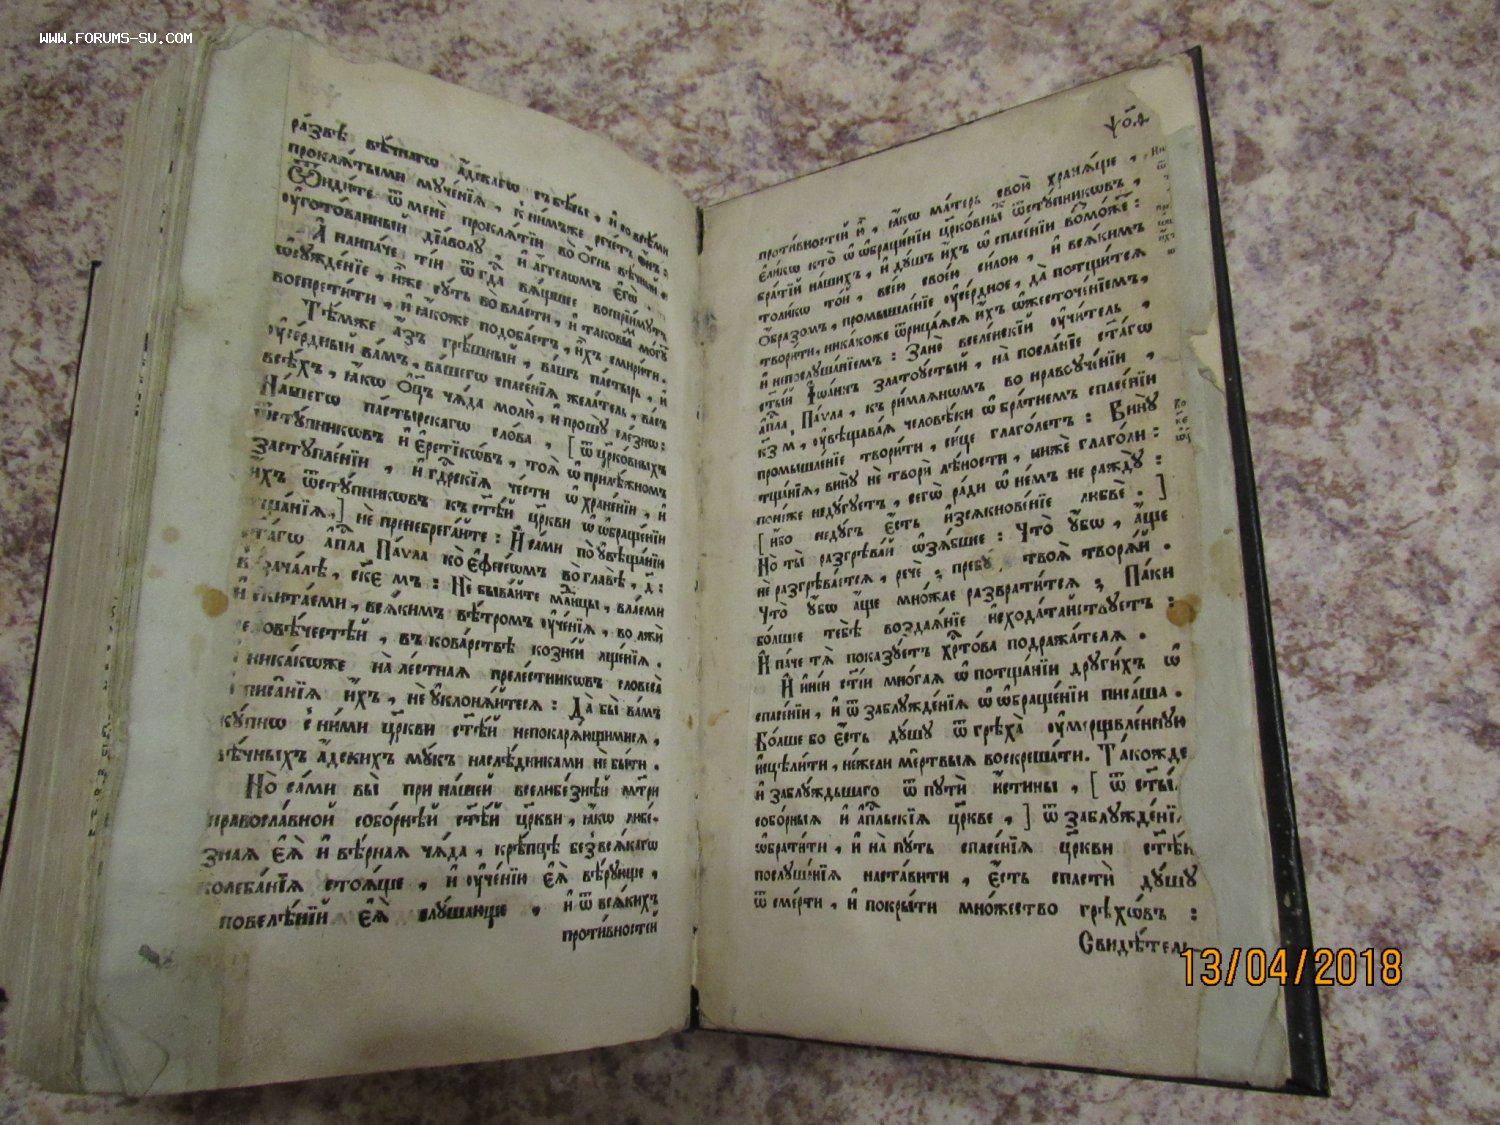 WWW.FORUMS-SU.COM
ра́звѣ вѣ́чнагѡ а҆́дскагѡ съ бѣ́сы, и҆ со всѣ́ми
проклѧ́тыми мꙋче́нїѧ, к̾ ни́мъже рече́тъ ѻ҆́нъ:
Ѿиди́те ѿ менє̀ проклѧ́тїи во ѻ҆́гнь вѣ́чный,
ᲂу҆гото́ванный дїа́волꙋ, и҆ а҆́гг҃еломъ є҆гѡ̀.
А҆ наипа́че ті́и ѿ бг҃а вѧ́щшее воспрїи́мꙋтъ
ѡ҆сꙋжде́нїе, и҆̀же сꙋ́ть во вла́сти, и҆ таковы́ѧ мо́гꙋтъ
воспрети́ти, и҆ ꙗ҆́коже подоба́етъ, и҆́хъ смири́ти.
Тѣ́мже а҆́зъ грѣ́шный, ва́шъ па́стырь, и҆
ᲂу҆се́рдный ва́мъ, ва́шегѡ спасе́нїѧ жела́тель, ва́съ
всѣ́хъ, ꙗ҆́кѡ ѻ҆ц҃ъ ча́да молю̀, и҆ прошꙋ̀ сле́знѡ:
На́шегѡ па́стырскагѡ сло́ва, [ѿ цр҃ко́вныхъ
ѿстꙋ́пникѡвъ и҆ є҆ретїкѡ́въ, тоѧ̀ ѡ҆ прилѣ́жномъ
застꙋпле́нїи, и҆ гдⷭ҇рскїѧ че́сти ѡ҆ хране́нїи, и҆
и҆́хъ ѿстꙋ́пникѡвъ къ ст҃ѣ́й цр҃кви ѡ҆ ѡ҆браще́нїи
тща́нїѧ,] не пренебрега́йте: И҆ са́ми по ᲂу҆вѣща́нїи
ст҃а́гѡ а҆пⷭ҇ла Па́ѵла ко є҆фе́сеѡмъ во главѣ̀, д҃:
в̾ зача́лѣ, ск҃є м̾: Не быва́йте младе́нцы, влае́ми
и҆ скита́еми, всѧ́кимъ вѣ́тромъ ᲂу҆че́нїѧ, во лжѝ
человѣ́честѣй, въ кова́рствѣ ко́зней льще́нїѧ.
И҆ ника́кѡже на ле́стнаѧ преле́стникѡвъ словеса̀
и҆ писа̑нїѧ и҆́хъ, не ᲂу҆клонѧ́йтесѧ: Да бы ва́мъ
кꙋ́пнѡ с̾ ни́ми цр҃кви ст҃ѣ́й непокарѧ́ющимисѧ,
вѣ́чныхъ а҆́дскихъ мꙋ́къ наслѣ́дниками не бы́ти.
Но са́ми вы̀ при на́шей вселюбе́знѣй мт҃ри
правосла́вной собо́рнѣй ст҃ѣ́й цр҃кви, ꙗ҆́кѡ любе́-
знаѧ є҆ѧ̀ и҆ вѣ́рнаѧ ча́да, крѣ́пцѣ без̾ всѧ́кагѡ
колеба́нїѧ стоѧ́ще, и҆ ᲂу҆че́нїи є҆ѧ̀ вѣ́рꙋюще,
повелѣ́нїй є҆ѧ̀ слꙋ́шающе, и҆ ѿ всѧ́кихъ
проти́вностей
ѱ҃о҃д
проти́вностей и҆̀, ꙗ҆́кѡ ма́терь свою̀ хранѧ́ще,
є҆ли́кѡ кто̀ ѡ҆ ѡ҆браще́нїи цр҃ко́вныхъ ѿстꙋ́пникѡвъ,
бра́тїй на́шихъ, и҆ дꙋ́шъ и҆́хъ ѡ҆ спасе́нїи возмо́жетъ:
толи́кѡ то́й, все́ю свое́ю си́лою, и҆ всѧ́кимъ
ѻ҆́бразомъ, промышле́нїе ᲂу҆се́рдное, да потщи́тсѧ
твори́ти, ника́коже ѿрица́ѧсѧ и҆́хъ ѡ҆жесточе́нїемъ,
и҆ непослꙋша́нїемъ: Занѐ вселе́нскїй ᲂу҆чи́тель,
ст҃ы́й І҆ѡа́ннъ Златоꙋ́стый, на посла́нїе ст҃а́гѡ
а҆пⷭ҇ла Па́ѵла, къ ри́млѧнѡмъ во нравоꙋче́нїи,
к҃з м̾, ᲂу҆вѣщава́ѧ человѣ́ки ѡ҆ бра́тнемъ спасе́нїи
промышле́нїе твори́ти, си́це глаго́летъ: Винꙋ̀
тща́нїѧ, винꙋ̀ не творѝ лѣ́ности, нижѐ глаго́ли:
поне́же недꙋ́гꙋетъ, сегѡ̀ ра́ди ѡ҆ не́мъ не раждꙋ̀:
[и҆́бо недꙋ́гъ є҆́сть и҆зсѧкнове́нїе любвѐ.]
Но ты̀ разгрѣва́й ѡ҆зѧ́бшее: Что̀ ᲂу҆́бѡ, а҆́ще
не разгрѣва́етсѧ, речѐ; пребꙋ́ди твоѧ̀ творѧ́й.
Что̀ ᲂу҆́бѡ а҆́ще мно́жае разврати́тсѧ; Па́ки
бо́лшее тебѣ̀ воздаѧ́нїе и҆схода́тайствꙋетъ:
И҆ па́че тѧ̀ показꙋ́етъ хрⷭ҇то́ва подража́телѧ.
И҆ и҆ні́и ст҃і́и мно́гаѧ ѡ҆ потща́нїи дрꙋги́хъ ѡ҆
спасе́нїи, и҆ ѿ заблꙋжде́нїѧ ѡ҆ ѡ҆браще́нїи писа́ша.
Бо́лше бо є҆́сть дꙋ́шꙋ ѿ грѣха̀ ᲂу҆мерщвле́ннꙋю
и҆сцѣли́ти, не́жели ме́ртвыѧ воскреша́ти. Та́кожде
и҆ заблꙋ́ждьшаго ѿ пꙋтѝ и҆́стины, [ѿ ст҃ы́ѧ
собо́рныѧ и҆ а҆пⷭ҇льскїѧ цр҃кве,] ѿ заблꙋжде́нїѧ
ѡ҆брата́ти, и҆ на пꙋ́ть спасе́нїѧ цр҃кви ст҃ѣ́й
послꙋша́нїѧ наста́вити, є҆́сть спастѝ дꙋ́шꙋ
ѿ сме́рти, и҆ покры́ти мно́жество грѣхѡ́въ:
Свидѣ́тель
13/04/2018